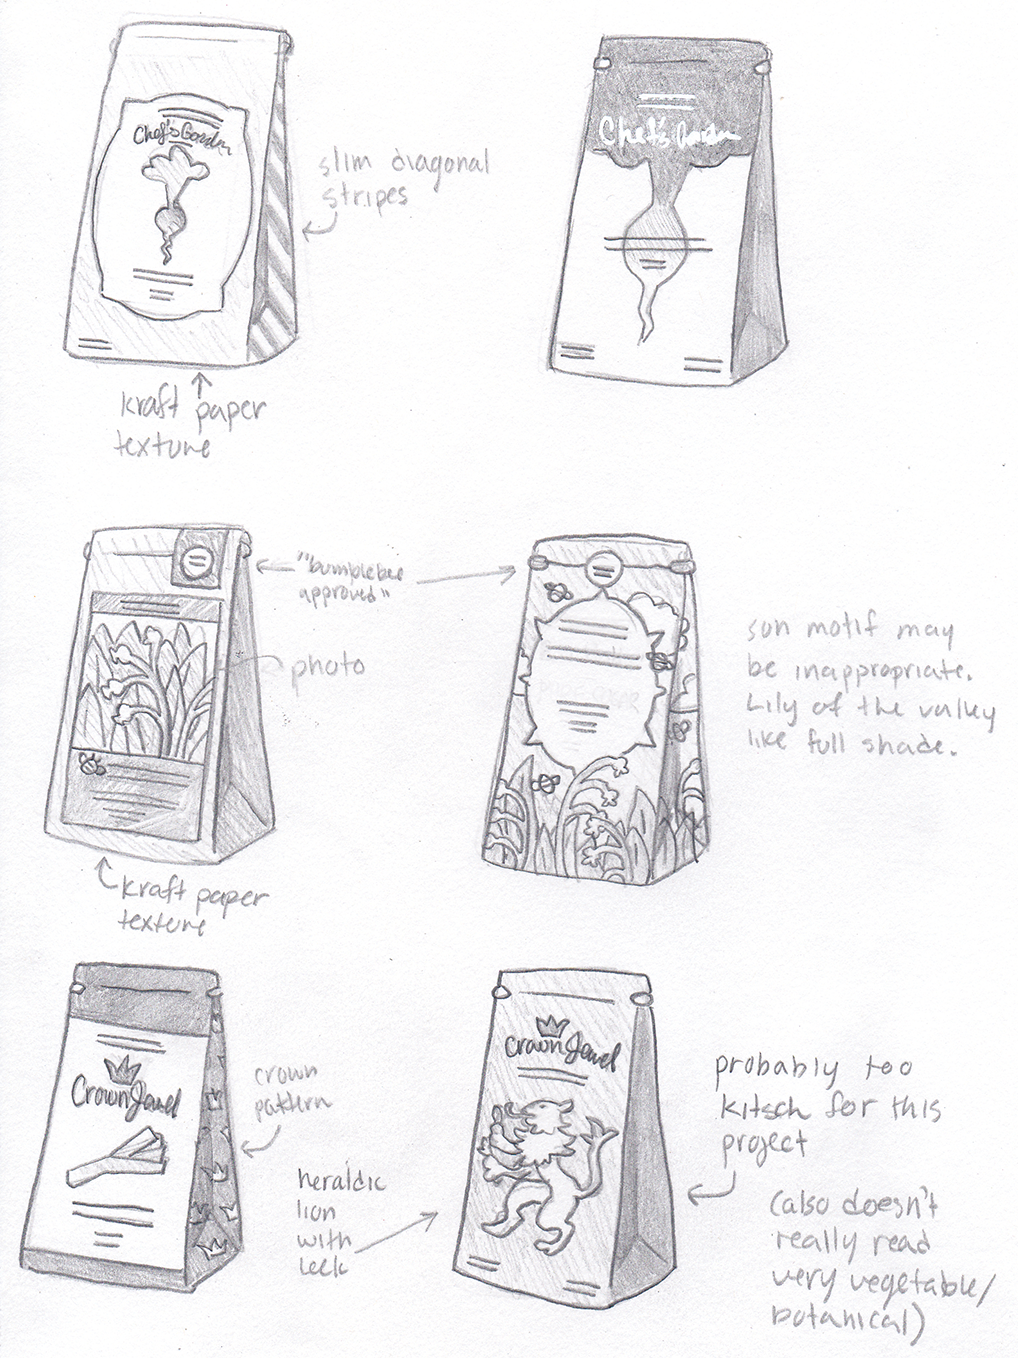 Chef's Garden
Chef's Garden
slim diagonal
stripes
kraft paper
texture
"bumblebee
approved"
photo
sun motif may
be inappropriate.
Lily of the valley
like full shade.
kraft paper
texture
Crown Jewel
crown
pattern
heraldic
lion
with
leek
Crown Jewel
probably too
kitsch for this
project
(also doesn't
really read
very vegetable/
botanical)